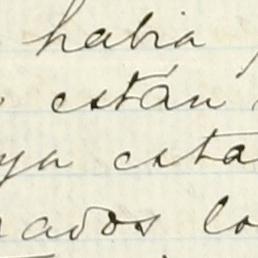 habia
están
ya esta
ados lo